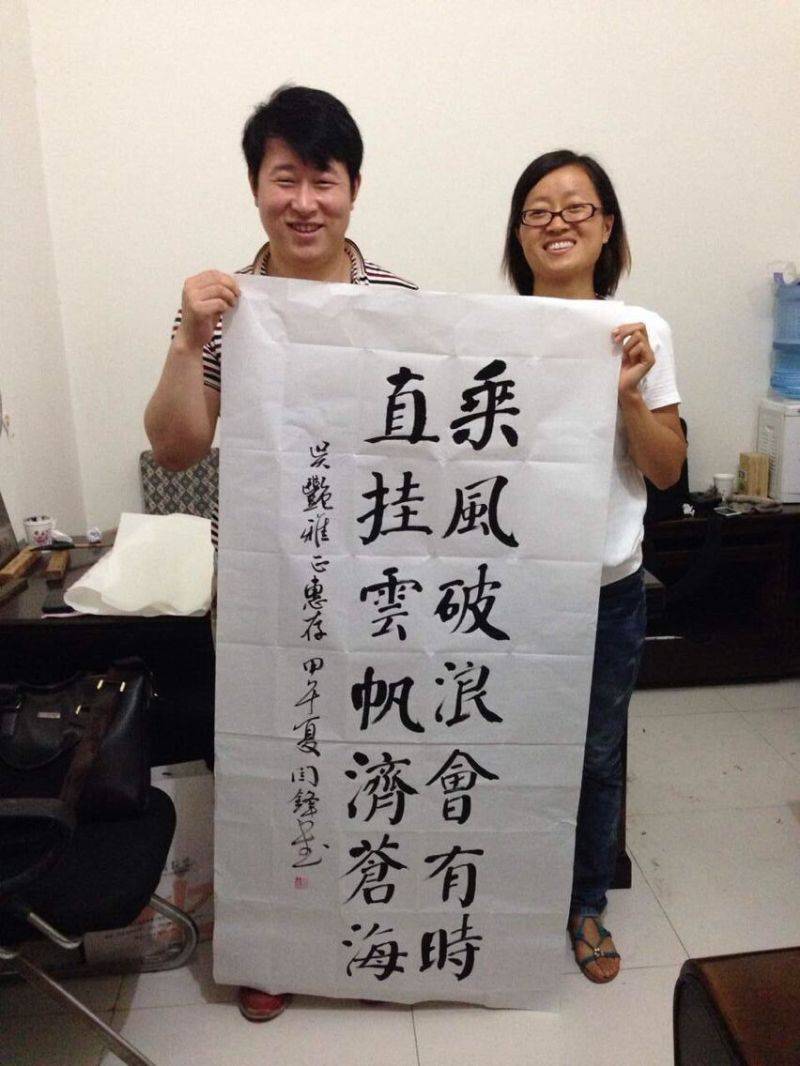 乘風破浪會有時
直挂雲帆濟蒼海
吴艷雅正惠存 甲午夏 闫鋒書